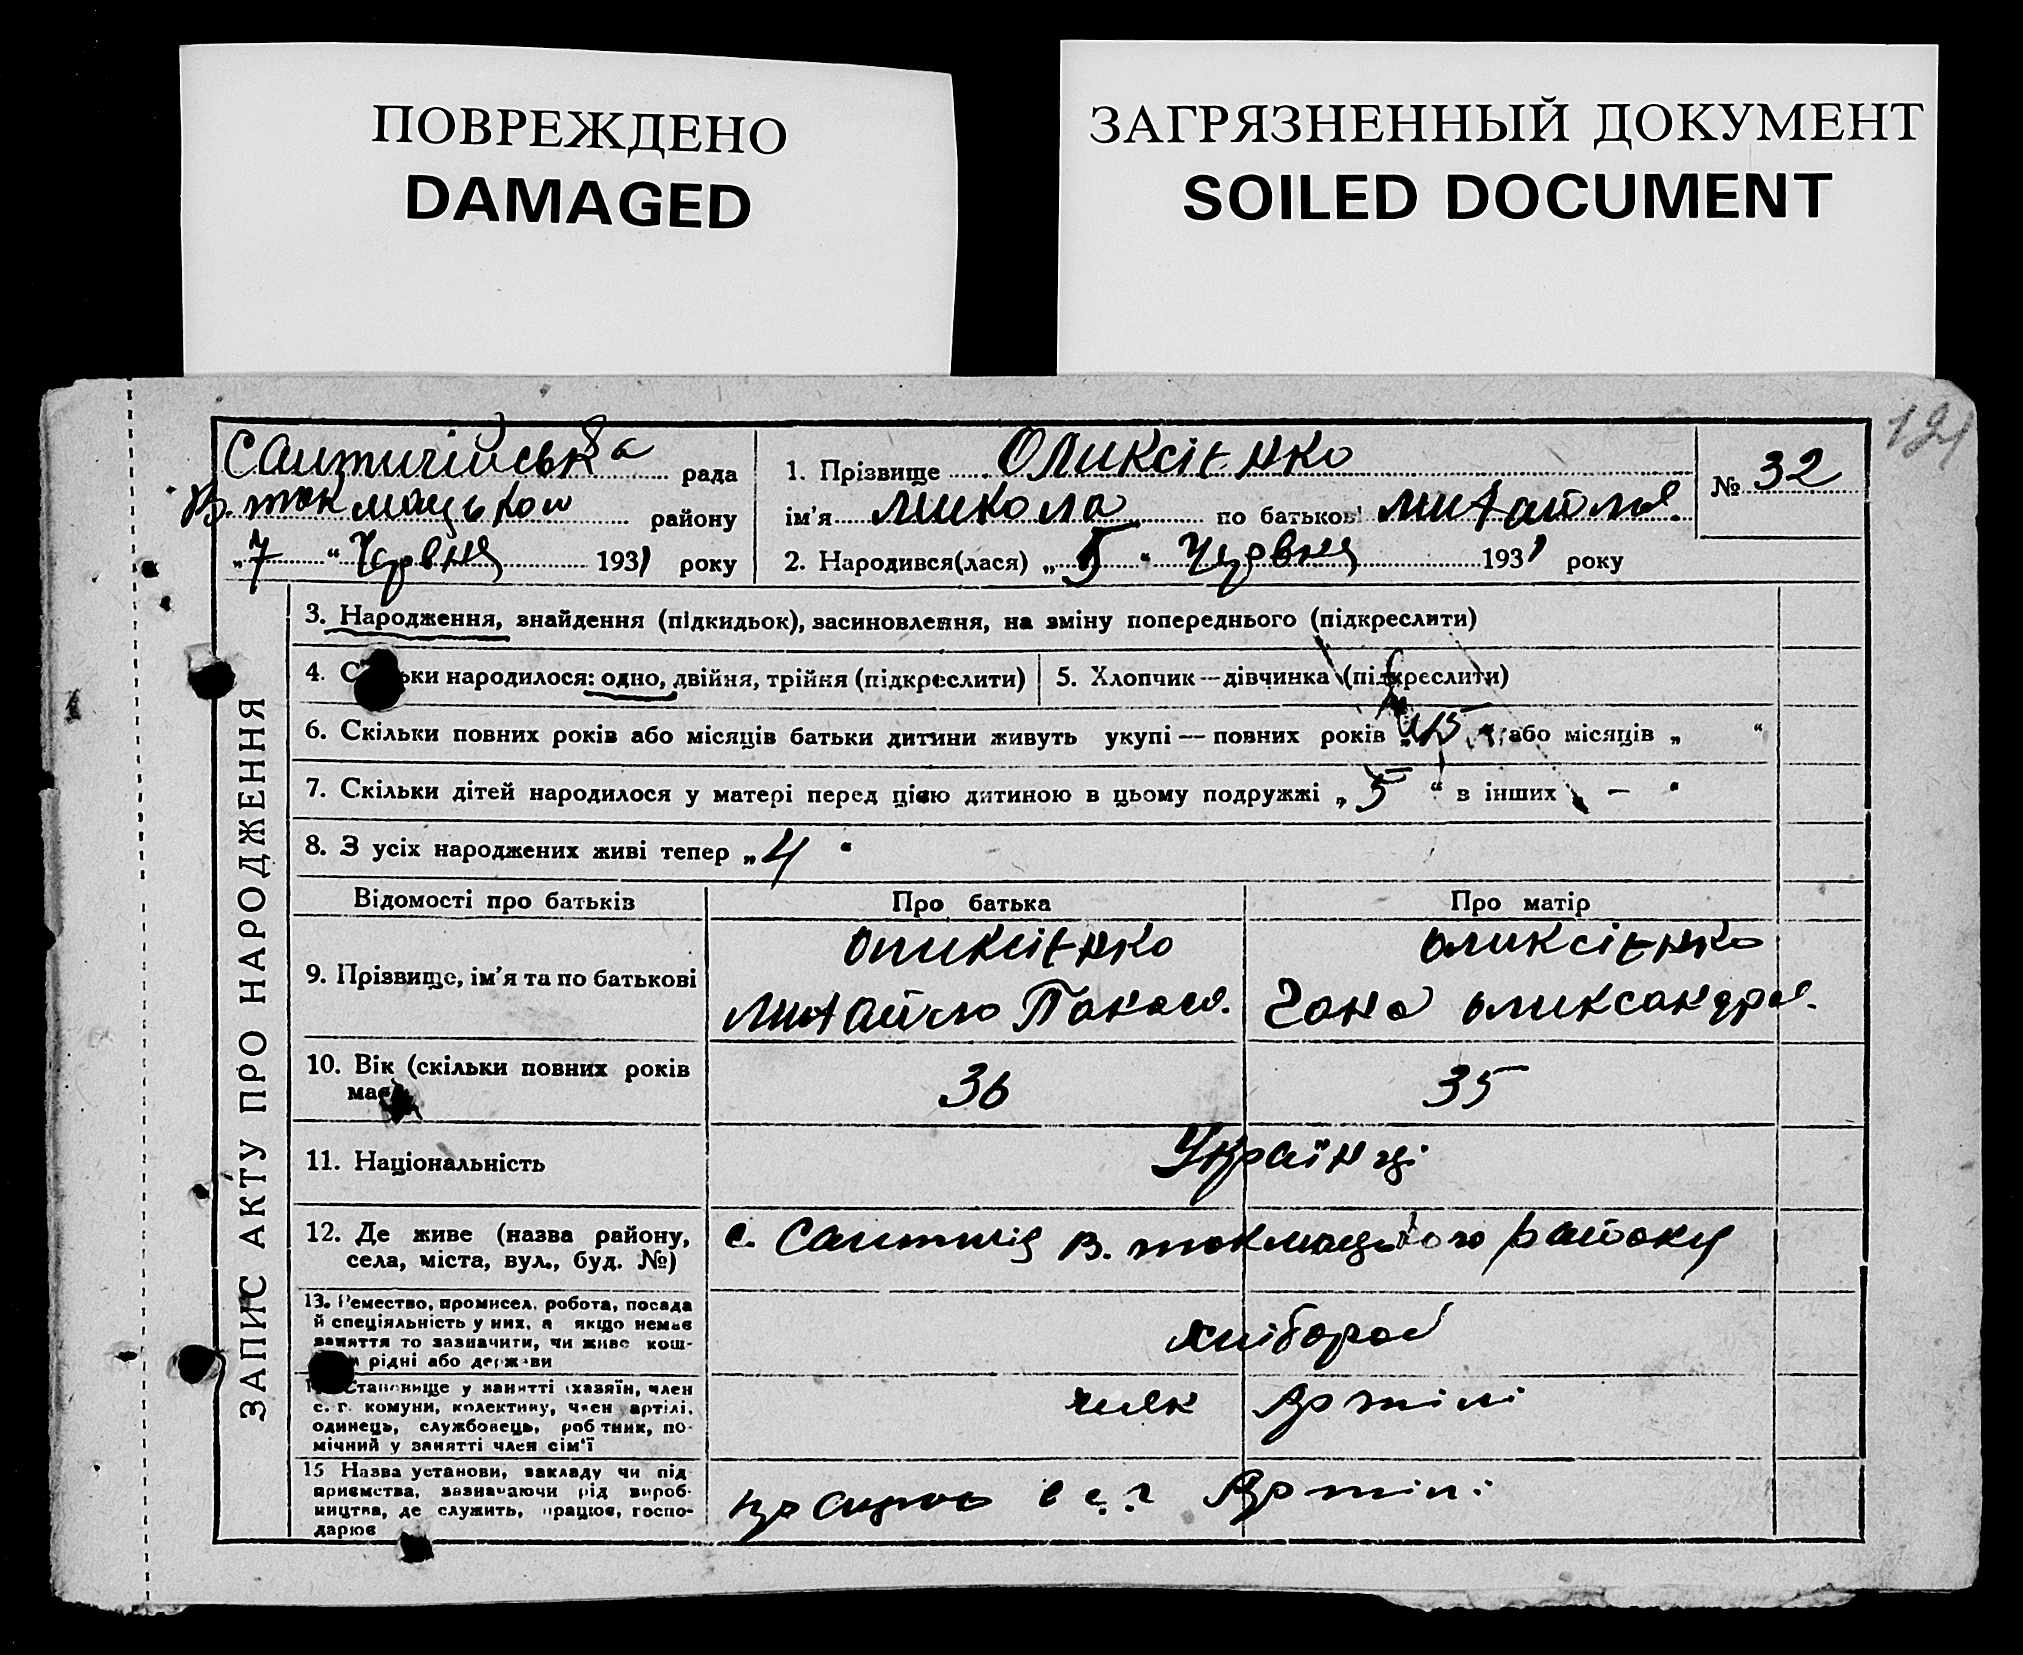 ПОВРЕЖДЕНО
DAMAGED
ЗАГРЯЗНЕННЫЙ ДОКУМЕНТ
SOILED DOCUMENT
121
рада
В. токмацьком району
„7“ Червня 1931 року
1. Прізвище Оликсієнко
ім'я Микола по батькові Михайлов.
2. Народився(лася) „5“ Червня 1931 року
№ 32
ЗАПИС АКТУ ПРО НАРОДЖЕННЯ
3. Народження, знайдення (підкидьок), засиновлення, на зміну попереднього (підкреслити)
4. Скільки народилося: одно, двійня, трійня (підкреслити)
5. Хлопчик — дівчинка (підкреслити)
6. Скільки повних років або місяців батьки дитини живуть укупі — повних років „15“ або місяців „ “
7. Скільки дітей народилося у матері перед цією дитиною в цьому подружжі „5“ в інших „ – “
8. З усіх народжених живі тепер „4“
Відомості про батьків Про батька Про матір
9. Прізвище, ім'я та по батькові
Оликсієнко
Михайло Панас.
Оликсієнко
Ганна Олександр.
10. Вік (скільки повних років має) 36 35
11. Національність Українці
12. Де живе (назва району, села, міста, вул., буд. №)
с. В. токмацького району
13. Ремество, промисел, робота, посада
й спеціяльність у них, а якщо немає
заняття то зазначити, чи живе кош-
рідні або держави
хлібороб
Становище у занятті (хазяїн, член
с.-г. комуни, колективу, член артілі,
одинець, службовець, робітник, по-
мічний у занятті член сім'ї
член Артілі
15 Назва установи, закладу чи під
приємства, зазначаючи рід вироб-
ництва, де служить, працює, госпо-
дарює
працює в с. г. Артілі